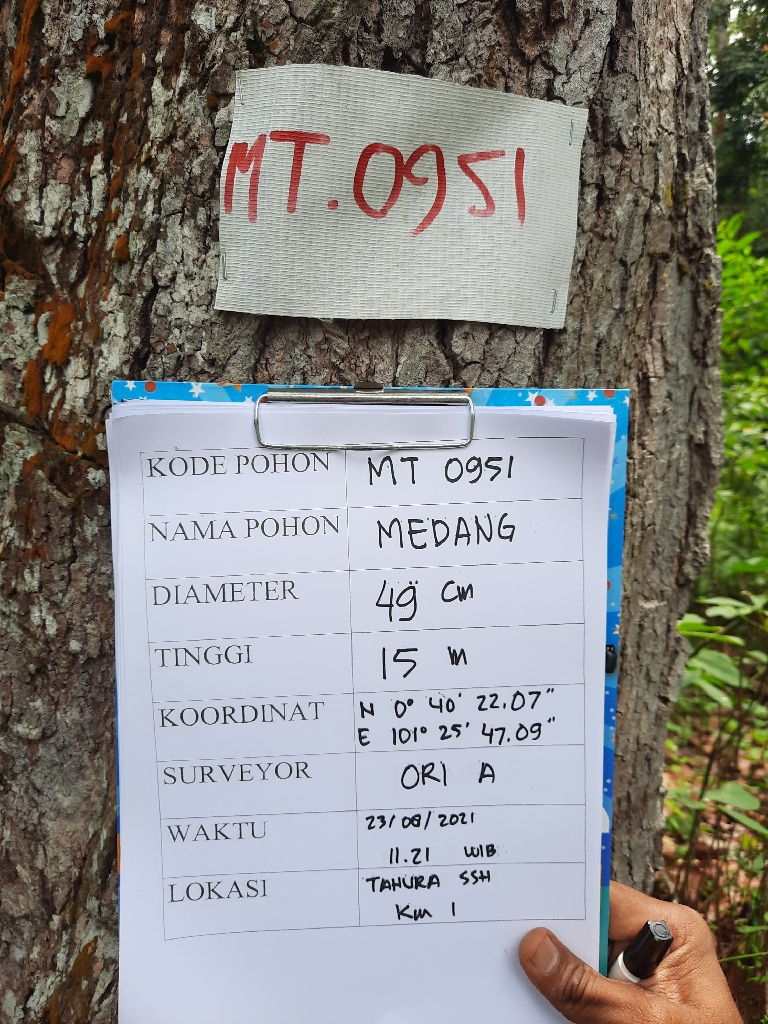 MT.0951
KODE POHON MT 0951
NAMA POHON MEDANG
DIAMETER 49 Cm
TINGGI 15 m
KOORDINAT N 0° 40' 22.07"
E 101° 25' 47.09"
SURVEYOR ORI A
WAKTU 23/08/2021
11.21 WIB
LOKASI TAHURA SSH
Km 1